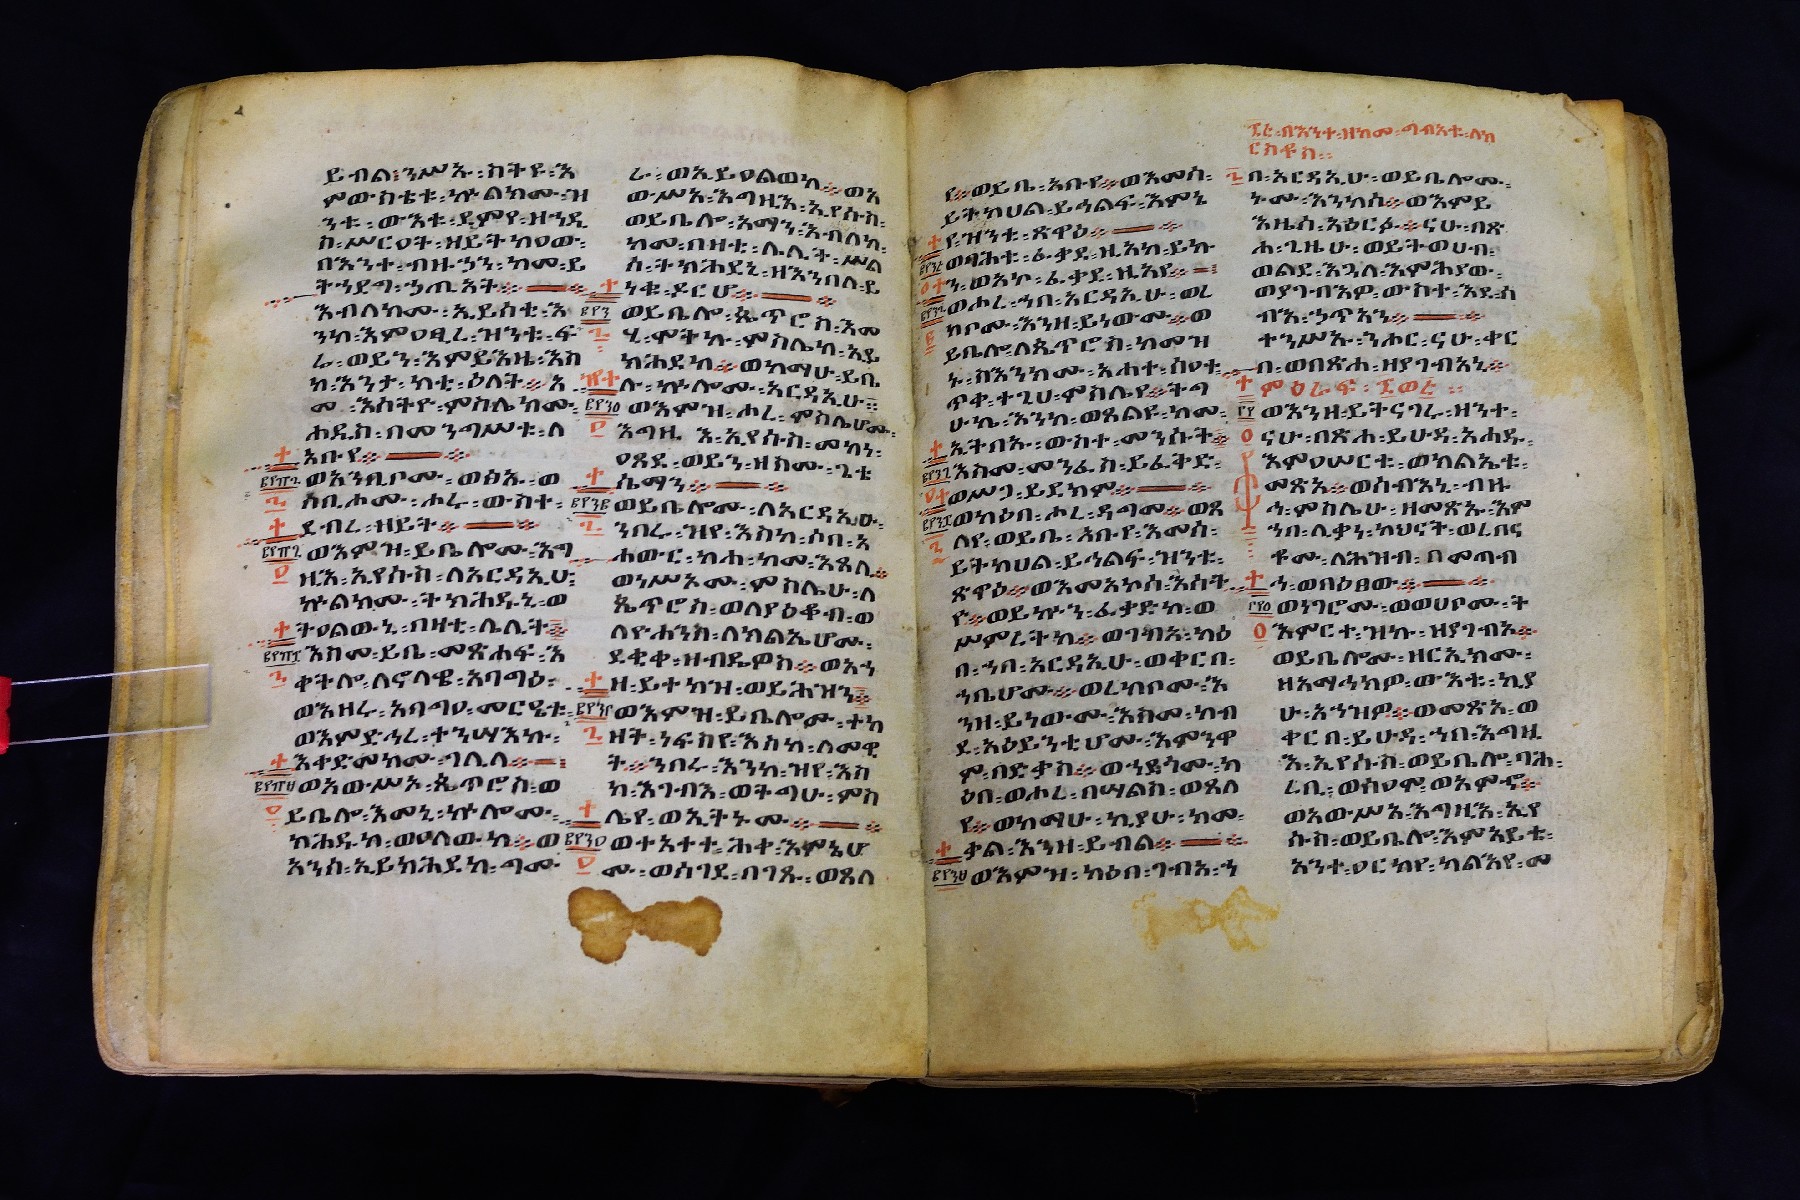 ይብል፡ንሥኡ፡ስትዩ፡እ
ምውስቴቱ፡ኵልክሙ፡ዝ
ንቱ፡ውእቱ፡ደምየ፡ዘሐዲ
ስ፡ሥርዐት፡ዘይትከዐው፡
በእንተ፡ብዙኃን፡ከመ፡ይ
ትኀደግ፡ኃጢአት፨
እብለክሙ፡ኢይሰቲ፡እ
ንከ፡እምዐፂረ፡ዝንቱ፡ፍ
ሬ፡ወይን፡እምይእዜ፡እስ
ከ፡እንታ፡ክቲ፡ዕለት፨አ
መ፡እሰትዮ፡ምስሌክሙ፡
ሐዲስ፡በመንግሥቱ፡ለ
አቡየ፨
ወአንቢቦሙ፡ወፅኡ፡ወ
ሰቢሖሙ፡ሖሩ፡ውስተ፡
ደብረ፡ዘይት፨
ወእምዝ፡ይቤሎሙ፡እግ
ዚእ፡ኢየሱስ፡ለአርዳኢሁ፡
ኵልክሙ፡ትክሕዱኒ፡ወ
ትዐልውኒ፡በዛቲ፡ሌሊት፨
እስመ፡ይቤ፡መጽሐፍ፡እ
ቀትሎ፡ለኖላዌ፡አባግዕ፡
ወእዘሩ፡አባግዐ፡መርዔቱ፡
ወእምድኅረ፡ተንሣእኩ፡
እቀድመክሙ፡ገሊላ፨
ወአውሥአ፡ጴጥሮስ፡ወ
ይቤሎ፡እመኒ፡ኵሎሙ፡
ክሕዱከ፡ወዐለውከ፨ወ
አንሰ፡ኢይክሕደከ፡ግሙ
ራ፡ወኢይዐልወከ፨ወአ
ውሥአ፡እግዚእ፡ኢየሱስ፡
ወይቤሎ፡አማን፡እብለከ፡
ከመ፡በዛቲ፡ሌሊት፡ሥል
ሰ፡ትክሕደኒ፡ዘእንበለ፡ይ
ነቁ፡ዶርሆ፨
ወይቤሎ፡ጴጥሮስ፡እመ
ሂ፡ሞትኩ፡ምስሌከ፡ኢይ
ክሕደከ፨ወከማሁ፡ይቤ
ሉ፡ኵሎሙ፡አርዳኢሁ፨
ወእምዝ፡ሖረ፡ምስሌሆሙ፡
እግዚእ፡ኢየሱስ፡መካነ፡
ዐጸደ፡ወይን፡ዘስሙ፡ጌቴ
ሴማን፨
ወይቤሎሙ፡ለአርዳኢሁ፡
ንበሩ፡ዝየ፡እስከ፡ሶበ፡አ
ሐውር፡ከሐ፡ከመ፡እጸሊ፨
ወነሥኦሙ፡ምስሌሁ፡ለ
ጴጥሮስ፡ወለያዕቆብ፡ወ
ለዮሐንስ፡ለክልኤሆሙ፡
ደቂቀ፡ዘብዴዎስ፨ወአኀ
ዘ፡ይተክዝ፡ወይሕዝን፨
ወእምዝ፡ይቤሎሙ፡ተከ
ዘት፡ነፍስየ፡እስከ፡ለመዊ
ት፨ንበሩ፡እንከ፡ዝየ፡እስ
ከ፡እገብእ፡ወትግሁ፡ምስ
ሌየ፡ወኢትኑሙ፨
ወተአተተ፡ሕቀ፡እምኔሆ
ሙ፡ወሰገደ፡በገጹ፡ወጸለ
የ፨ወይቤ፡አቡየ፨ወእመሰ፡
ይትከሀል፡ይኅልፍ፡እምኔ
የ፡ዝንቱ፡ጽዋዕ፨
ወባሕቱ፡ፈቃደ፡ዚአከ፡ይኩ
ን፡ወአኮ፡ፈቃደ፡ዚአየ፨
ወሖረ፡ኀበ፡አርዳኢሁ፡ወረ
ከቦሙ፡እንዘ፡ይነውሙ፨ወ
ይቤሎ፡ለጴጥሮስ፡ከመዝ
ኑ፡ስእንክሙ፡አሐተ፡ሰዓተ፡
ጥቀ፡ተጊሀ፡ምስሌየ፨ትግ
ሁኬ፡እንከ፡ወጸልዩ፡ከመ፡
ኢትባኡ፡ውስተ፡መንሱት፨
እስመ፡መንፈስ፡ይፈቅድ፡
ወሥጋ፡ይደክም፨
ወካዕበ፡ሖረ፡ዳግመ፨ወጸ
ለየ፡ወይቤ፡አቡየ፡እመሰ፡
ይትከሀል፡ይኅልፍ፡ዝንቱ፡
ጽዋዕ፨ወእመአኮሰ፡እሰት
ዮ፨ወይኩን፡ፈቃድከ፡ወ
ሥምረትከ፨ወገብአ፡ካዕ
በ፡ኀበ፡አርዳኢሁ፡ወቀርበ፡
ኀቤሆሙ፨ወረከቦሙ፡እ
ንዘ፡ይነውሙ፡እስመ፡ከብ
ደ፡አዕይንቲሆሙ፡እምንዋ
ም፡በድቃስ፨ወኀደጎሙ፡ካ
ዕበ፡ወሖረ፡በሣልስ፡ወጸለ
የ፨ወከማሁ፡ኪያሁ፡ከመ፡
ቃል፡እንዘ፡ይብል፨
ወእምዝ፡ካዕበ፡ገብአ፡ኀ
፲፭፡በእንተ፡ዘከመ፡ግብአቱ፡ለክ
ርስቶስ፨
በ፡አርዳኢሁ፡ወይቤሎሙ፡
ኑሙ፡እንከሰ፨ወእምይ
እዜሰ፡አዕርፉ፨ናሁ፡በጽ
ሐ፡ጊዜሁ፡ወይትወሀብ፡
ወልደ፡እጓለ፡እምሕያው፡
ወያገብእዎ፡ውስተ፡እደ፡ሰ
ብእ፡ኃጥአን፨
ተንሥኡ፡ንሖር፡ናሁ፡ቀር
በ፡ወበጽሐ፡ዘያገብአኒ፨
ምዕራፍ፡፲ወ፭፨
ወእንዘ፡ይትናገር፡ዘንተ፡
ናሁ፡በጽሐ፡ይሁዳ፡አሐዱ፡
እምዐሠርቱ፡ወክልኤቱ፡
መጽአ፨ወሰብእኒ፡ብዙ
ኅ፡ምስሌሁ፡ዘመጽኡ፡እም
ኀበ፡ሊቃነ፡ካህናት፡ወረበና
ቶሙ፡ለሕዝብ፡በመጣብ
ኅ፡ወበዕፀው፨
ወነገሮሙ፡ወወሀቦሙ፡ት
እምርተ፡ዝኩ፡ዘያገብኦ፨
ወይቤሎሙ፡ዘርኢክሙ፡
ዘአማኅክዎ፡ውእቱ፡ኪያ
ሁ፡አኀዝዎ፨ወመጽአ፡ወ
ቀርበ፡ይሁዳ፡ኀበ፡እግዚ
እ፡ኢየሱስ፡ወይቤሎ፡ባሕ፡
ረቢ፡ወሰዐሞ፡ወአምኆ፨
ወአውሥአ፡እግዚእ፡ኢየ
ሱስ፡ወይቤሎ፡እምአይቴ፡
አንተ፡ዐርክየ፡ካልእየ፡መ